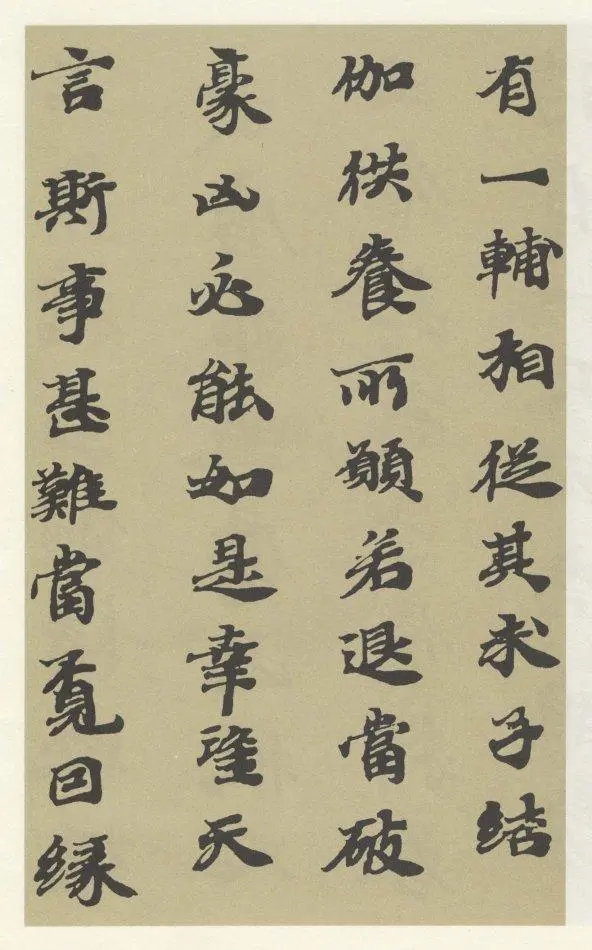 有一輔相從其求子結
伽供養所願若退當破
豪凶必能如是幸望天
言斯事甚難當覓因緣